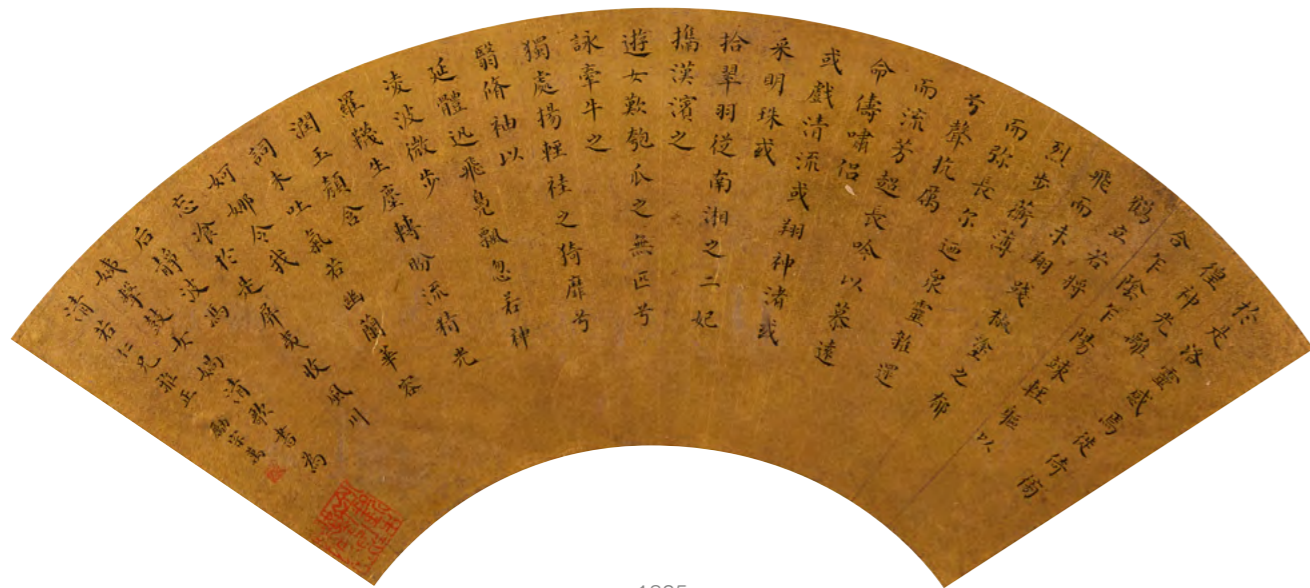 於是洛靈感焉徙倚傍
徨神光離
合乍陰乍陽竦輕軀以
鶴立若將
飛而未翔踐椒塗之郁
烈步蘅薄
而流芳超長吟以慕遠
兮聲抗厲
而弥長尔迺眾靈雜遝
命儔嘯侶
或戲清流或翔神渚或
采明珠或
拾翠羽從南湘之二妃
攜漢濱之
遊女歎匏瓜之無匹兮
詠牽牛之
獨處揚輕袿之猗靡兮
翳脩袖以
延體迅飛鳧飄忽若神
凌波微步
羅韈生塵轉盼流精光
潤玉顏含
詞未吐氣若幽蘭華容
婀娜令我
忘飡於是屏翳收風川
后靜波馮
擊鼓女媧清歌書為
清若仁兄雅正
勵宗萬